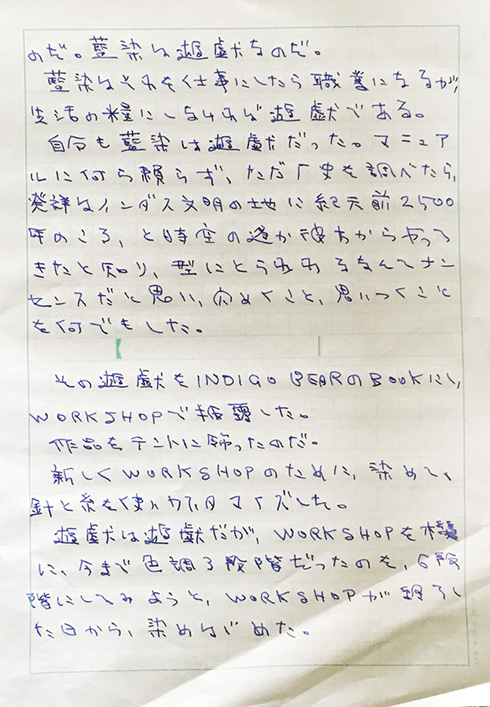 のだ。藍染は遊戯なのだ。
藍染はそれを仕事にしたら職業になるが、
生活の糧にしなければ遊戯である。
自分も藍染は遊戯だった。マニュア
ルに何ら頼らず、ただ歴史を調べたら、
発祥はインダス文明の地に紀元前2500
年のころ、と時空の遥か彼方からやって
きたと知り、型にとらわれるなんてナン
センスだと思い、穴めくこと、思いつくこと
を何でもした。
その遊戯をINDIGO BEARのBOOKにし、
WORKSHOPで披露した。
作品をテントに飾ったのだ。
新しくWORKSHOPのために、染めて、
針と糸を使いカスタマイズした。
遊戯は遊戯だが、WORKSHOPを機
に、今まで色調3段階だったのを、6段
階にしてみようと、WORKSHOPが終了し
た日から、染めはじめた。